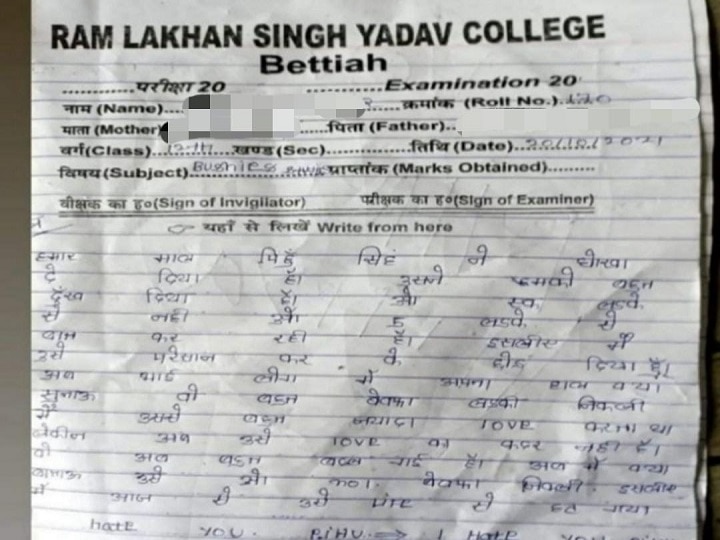 RAM LAKHAN SINGH YADAV COLLEGE
Bettiah
............परीक्षा 20 ............Examination 20
नाम (Name).... क्रमांक (Roll No.)
माता (Mother) ......पिता (Father)..
वर्ग(Class)...12th....खण्ड (Sec)...............तिथि (Date)
विषय(Subject) प्राप्तांक (Marks Obtained).........
वीक्षक का ह०(Sign of Invigilator) परीक्षक का ह०(Sign of Examiner)
यहाँ से लिखें Write from here
हमार माल सिंह ने धोखा
दे दिया है। उसने हमको बहुत
दुःख दिया है। ओ एक लड़के
से नही ओ 5 लड़के से
बात कर रही है। इसलीए मैं
उसे परेसान कर के छोड़ दिया है।
अब भाई लोग मैं अपना हाल क्या
सुनाऊ वो बहुत बेवफा लडकी निकली
मैं उससे बहुत जयादा love करता था
लेकीन अब उसे love का कदर नही है।
वो अब बहुत बदल गई है। अब मैं क्या
बताऊ उसे ओ no1. बेवफा निकली. इसलीए
मैं आज से उसे से हट गया
hate you. PiHU. I Hate you